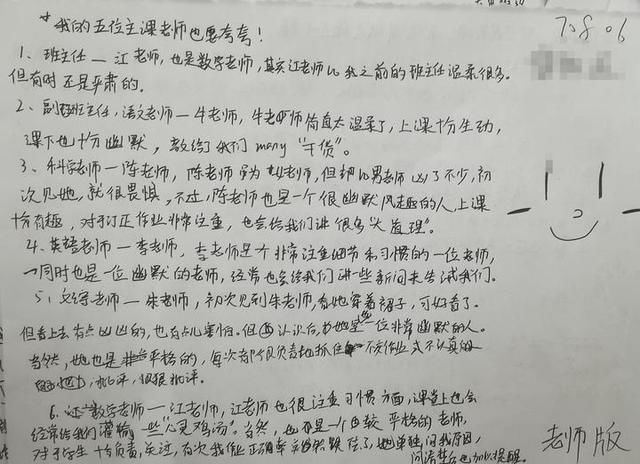 *我的五位主课老师也要夸夸!
70806
1、班主任—江老师,也是数学老师,其实江老师比我之前的班主任温柔很多。
但有时还是严肃的。
2、副班主任,语文老师—牛老师,牛老师简直太温柔了,上课十分生动,
课下也十分幽默,教给了我们many“干货”。
3、科学老师—陈老师,陈老师身为女老师,但却比男老师凶了不少,初
次见她,就很畏惧,不过,陈老师也是一个很幽默风趣的人,上课
十分有趣,对于订正作业非常注重,也会给我们讲很多“大道理”。
4、英语老师—李老师,李老师是个非常注重细节和习惯的一位老师,
同时也是一位幽默的老师,经常也会给我们讲一些新闻来告诫我们。
5、老师—朱老师,初次见到朱老师,看她穿着裙子,可好看了。
但看上去有点凶凶的,也有点儿害怕。但认识后,她是一位非常幽默的人。
当然,她也是严格的,每次都很负责地抓住不交作业或不认真的
批评,狠狠批评。
6、数学老师—江老师,江老师也很注重习惯方面,课堂上也会
经常给我们灌输一些“心灵鸡汤”。当然,也是一个比较严格的老师,
对于学生十分负责,关注,有次我作业正确率突然跌了,她单独问我原因,
问清楚后也加以提醒。
老师版